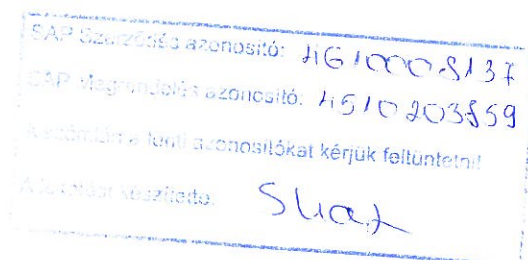 SAP Szerződés azonosító: 4610008137
SAP Megrendelés azonosító: 4510203859
A számlán a fenti azonosítókat kérjük feltüntetni!
készítette: